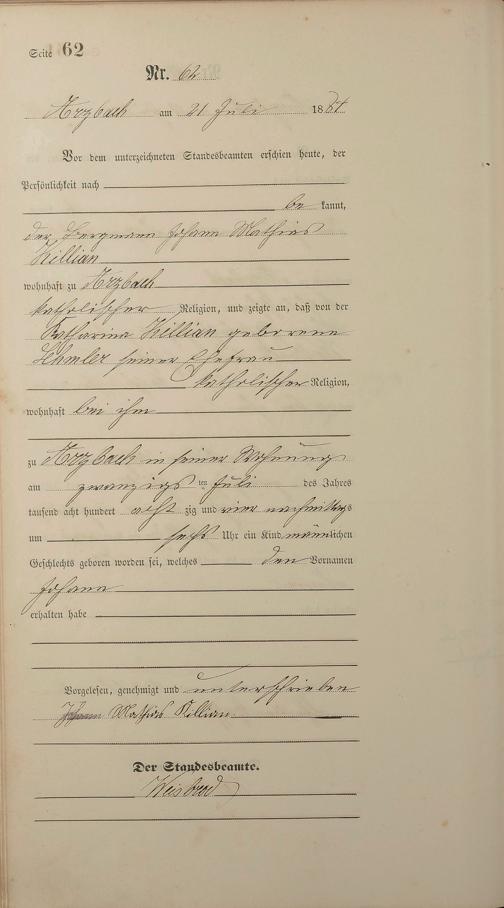 Seite 62
Nr. 62
Arzbach am 21 Juli 1884
Vor dem unterzeichneten Standesbeamten erschien heute, der
Persönlichkeit nach
be kannt,
der Bergmann Johann Mathias
Killian
wohnhaft zu Arzbach
katholischer Religion, und zeigte an, daß von der
Katharina Killian geborene
seiner Ehefrau
katholischer Religion,
wohnhaft bei ihm
zu Arzbach in seiner Wohnung
am zwanzigs ten Juli des Jahres
tausend acht hundert acht zig und vier nachmittags
um sechs Uhr ein Kind männlichen
Geschlechts geboren worden sei, welches den Vornamen
Johann
erhalten habe
Vorgelesen, genehmigt und unterschrieben
Johann Mathias Killian
Der Standesbeamte.
Weisbrod